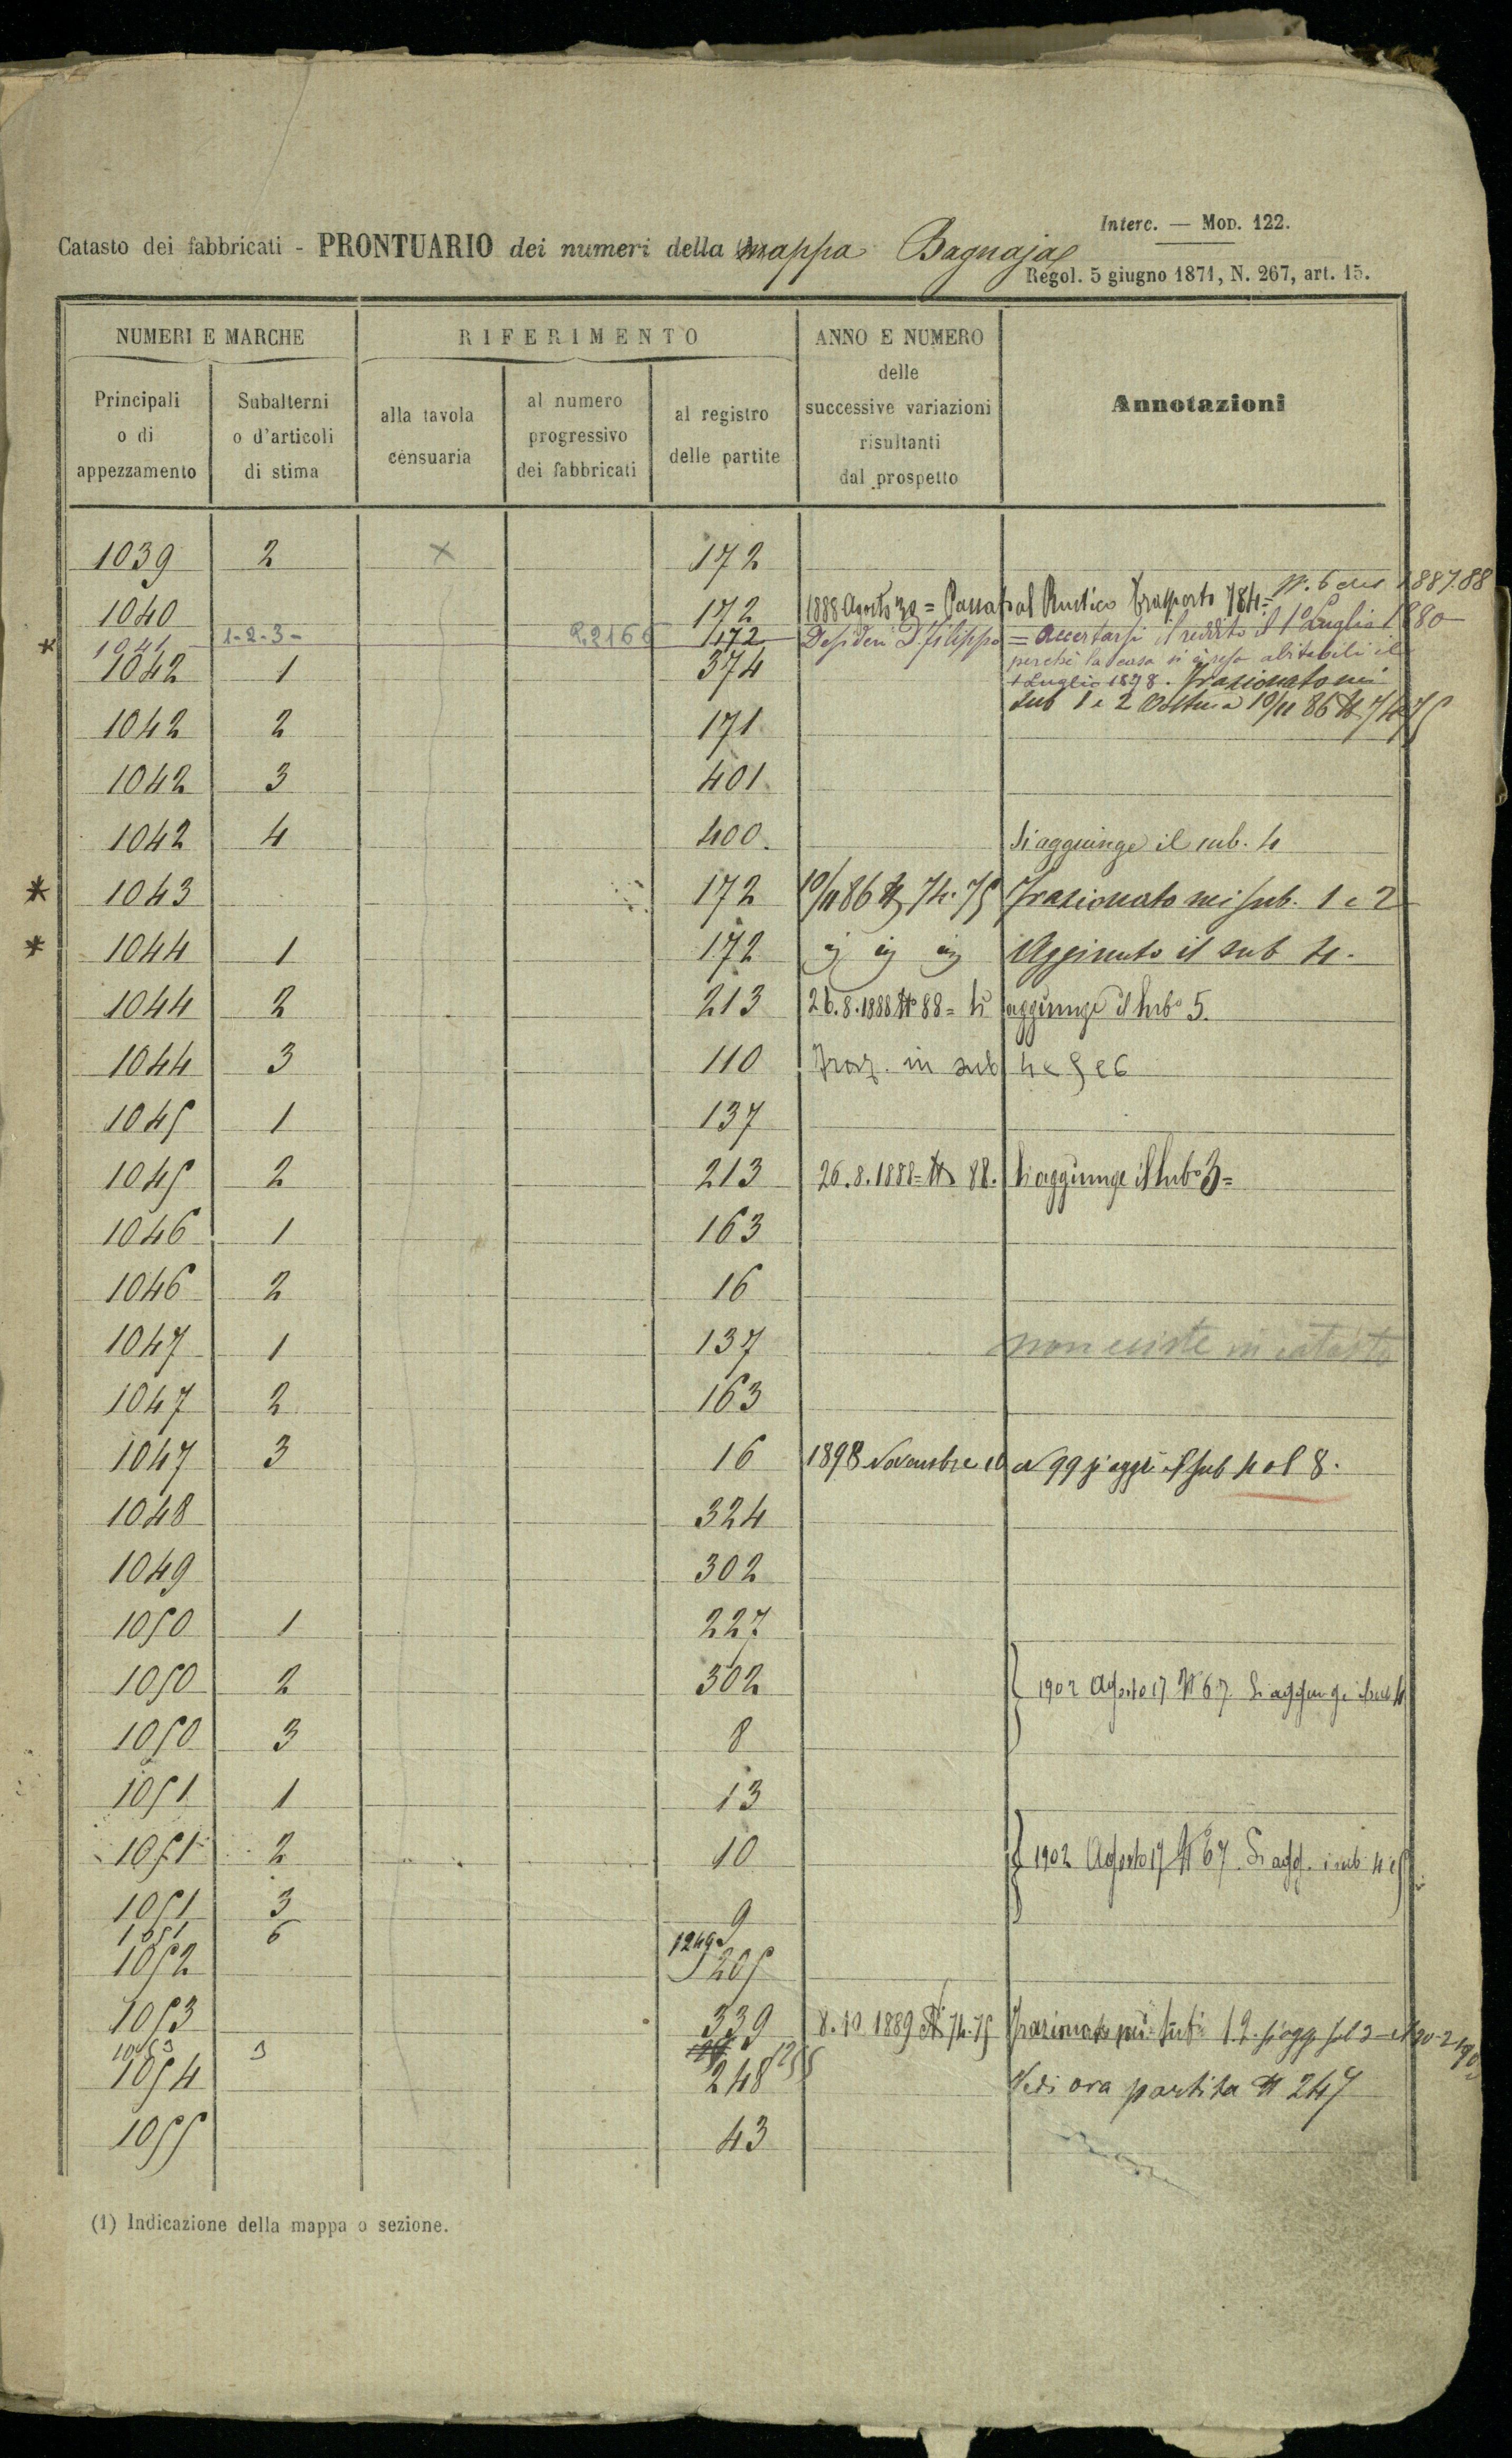 Interc. — Mod. 122.
Catasto dei fabbricati - PRONTUARIO dei numeri della mappa Bagnaja
Regol. 5 giugno 1871, N. 267, art. 15.
NUMERI E MARCHE RIFERIMENTO ANNO E NUMERO
delle
successive variazioni
risultanti
dal prospetto
Annotazioni
Principali
o di
appezzamento
Subalterni
o d'articoli
di stima
alla tavola
censuaria
al numero
progressivo
dei fabbricati
al registro
delle partite
1039 2 × 172
1040 172 1888 Agosto 30 = Passato al Rustico Trasporto 784 = 1887.88
* 1041 1-2-3- 172 Desideri D. Filippo = Accertarsi il reddito il 1° Luglio 1880
perchè la casa si è resa abitabile il
1 Luglio 1878. Frazionato nei
sub 1 e 2 10/11 86 N 74.75
1042 1 374
1042 2 171
1042 3 401
1042 4 400. Si aggiunge il sub. 4
* 1043 172 10/11 86 N 74.75 Frazionato nei sub. 1 e 2
* 1044 1 172 Aggiunto il sub 4.
1044 2 213 26.8.1888 N° 88 = Si aggiunge il sub° 5.
1044 3 110 Fraz. in sub 4 e 5 e 6
1045 1 137
1045 2 213 26.8.1888 = N° 88. Si aggiunge il sub° 3 =
1046 1 163
1046 2 16
1047 1 137 non esiste in catasto
1047 2 163
1047 3 16 1898 Novembre 10 N 99 si agg: il sub 4 al 8.
1048 324
1049 302
1050 1 227
1050 2 302 1902 Agosto 17 N° 67 Si aggiunge il sub 4
1050 3 8
1051 1 13
1051 2 10 1902 Agosto 17 N° 67. Si agg. i sub 4 e 5
1051 3 9
1051 6 1249
1052 205
1053 339 8.10 1889 N 74.75 Frazionato nei sub 1 2. si agg.
1053 3 1255
1054 248 Vedi ora partita N 247
1055 43
(1) Indicazione della mappa o sezione.